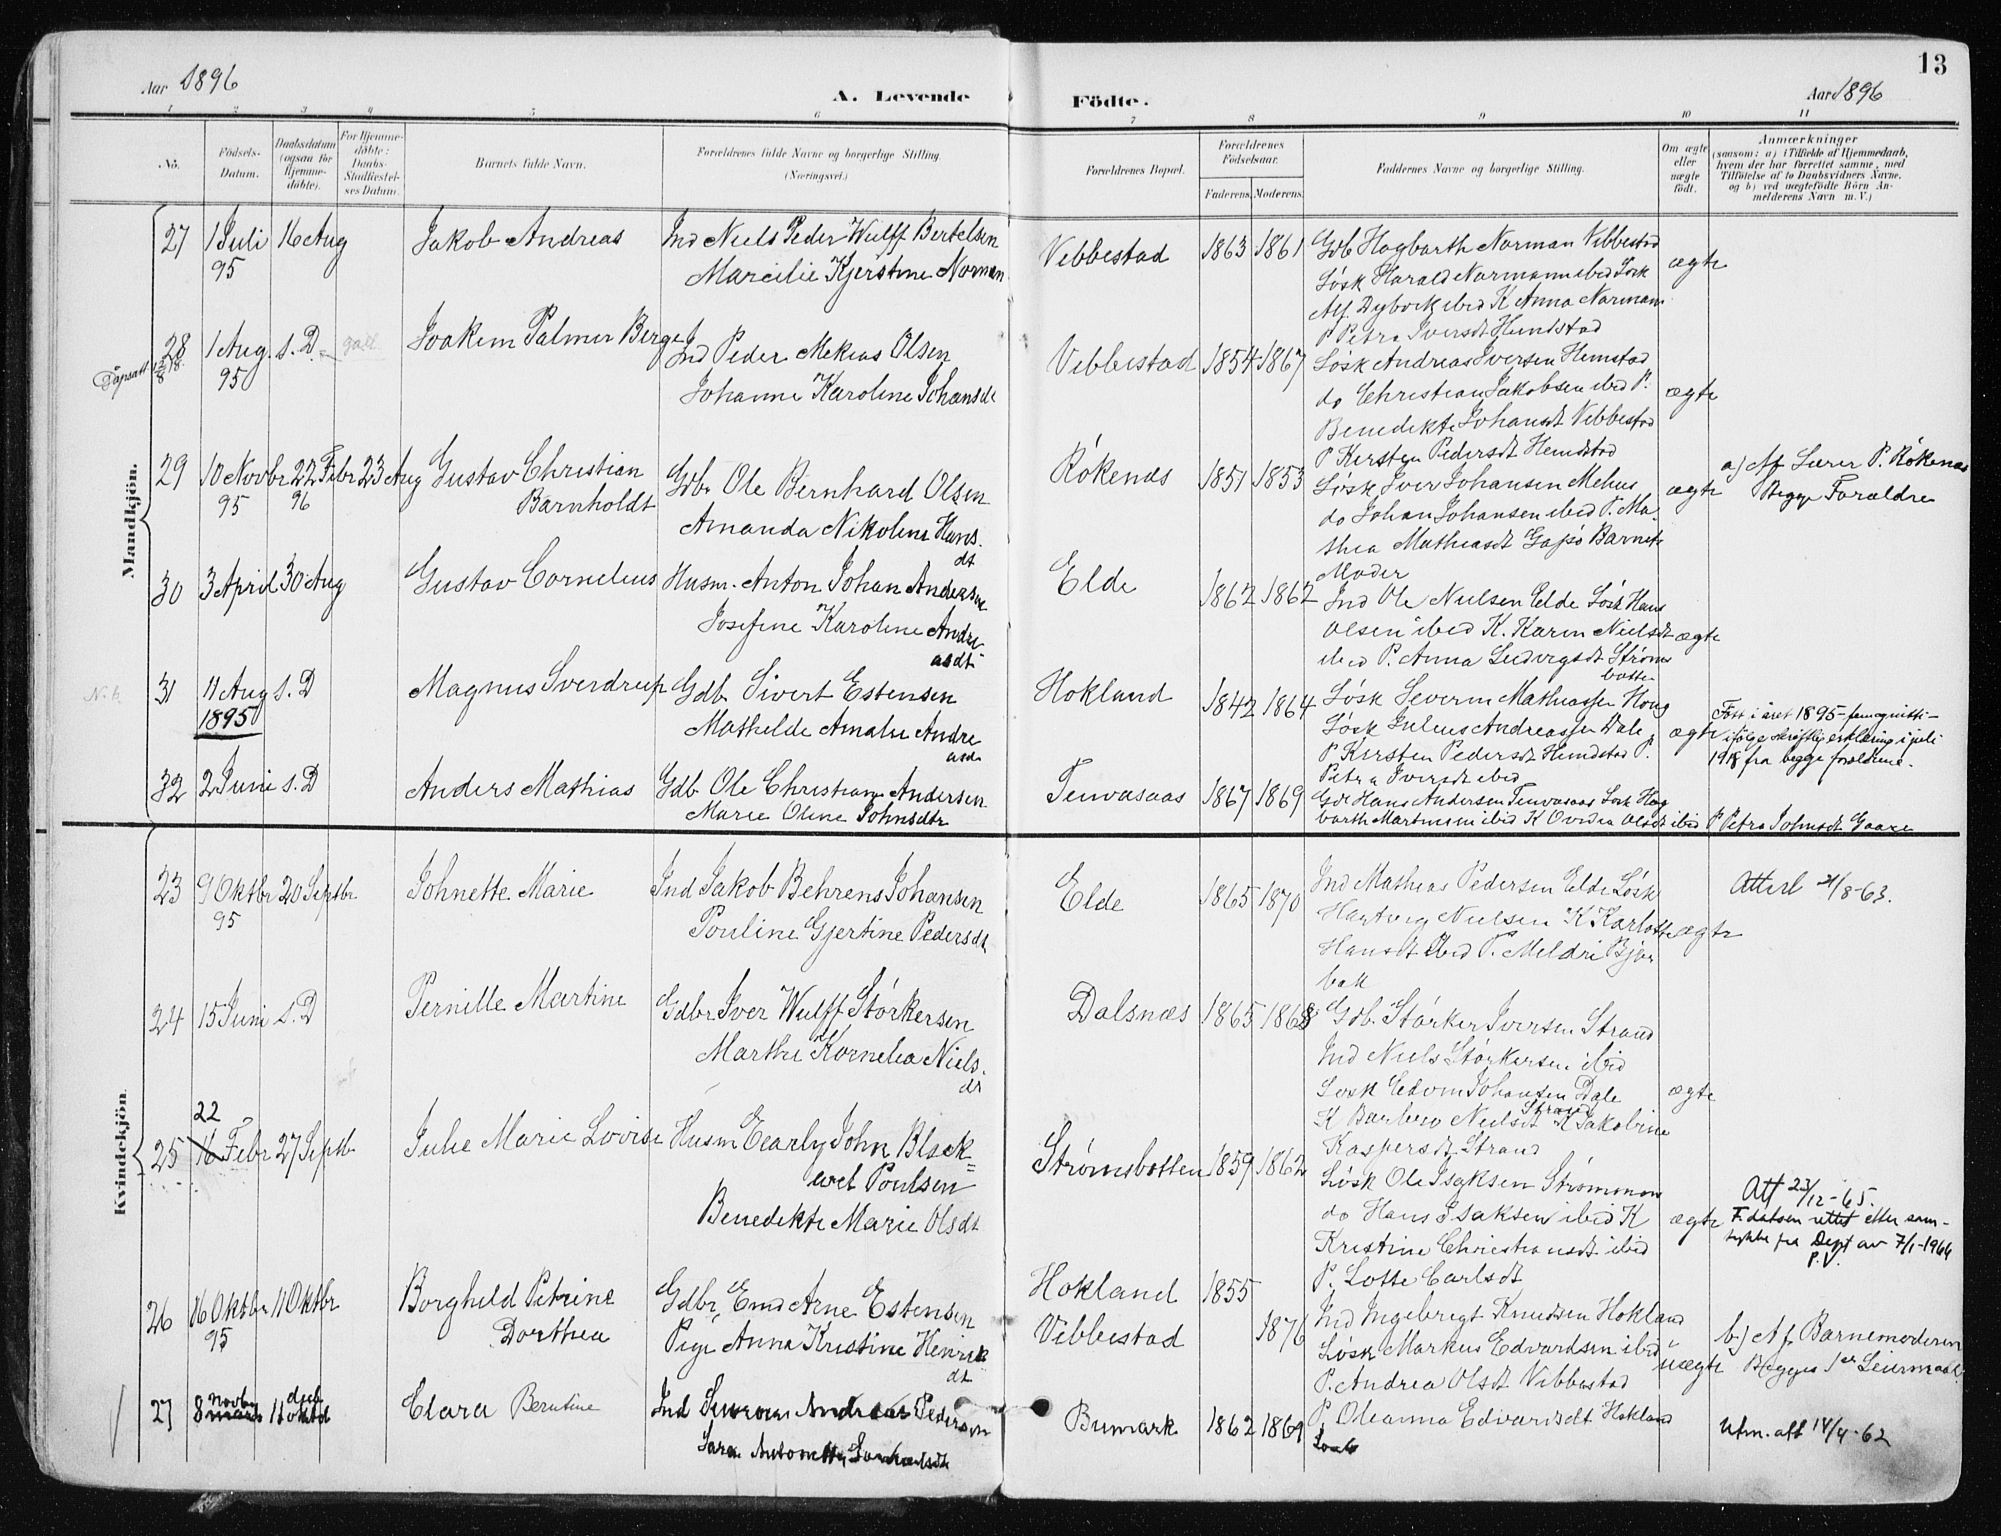 13
Aar 1896
A. Levende
Födte.
Aar 1896
1 2 3 4 5 6 7 8 9 10 11
No.
Födsels-Datum.
Daabsdatum (ogsaa for Hjemmedöbte).
For Hjemmedöbte: Daabs-Stadfæstelses Datum.
Barnets fulde Navn.
Forældrenes fulde Navne og borgerlige Stilling. (Næringsvei.)
Forældrenes Bopæl.
Forældrenes Födselsaar.
Faderens. Moderens.
Faddernes Navne og borgerlige Stilling.
Om ægte eller uægte födt.
Anmærkninger
(saasom: a) i Tilfælde af Hjemmedaab,
hvem der har forrettet samme, med
Tilföielse af to Daabsvidners Navne,
og b) ved uægtefödte Börn An-
melderens Navn m. V.)
Mandkjön.
27 1 Juli 95 16 Aug
Jakob Andreas
Ind Niels Peder Wulff Bertelsen
Marcilie Kjerstine Norman
Vebbestad 1863 1861
Gdb Hagbarth Norman Vebbestad
Løsk Harald Normann ibid Løsk
Alf Dybvik ibid K Anna Norman
P Petra Iversdt Hemstad
ægte
28 1 Aug. 95 s. D.
Joakim Palmer Berge
Ind Peder Mekias Olsen
Johanne Karoline Johansdt
Vebbestad 1854 1867
Løsk Andreas Iversen Hemstad
do Christian Jakobsen ibid P.
Benedikte Johansdt Vebbestad
P Kirsten Pedersdt Hemstad
ægte
29 10 Novbr 95 22 Febr 96 23 Aug
Gustav Christian
Barnholdt
Gdbr Ole Bernhard Olsen
Amanda Nikoline Hans
dt
Røkenæs 1851 1853
Løsk Iver Johansen Mehus
do Johan Johansen ibid P. Ma
thea Mathiasdt Gapø Barnets
Moder
ægte
a) Af Lærer P. Røkenæs
Begge Forældre
30 3 April 30 Aug
Gustav Cornelius
Husm. Anton Johan Andersen
Josefine Karoline Andre
asdt
Elde 1862 1862
Ind Ole Nielsen Elde Løsk Hans
Olsen ibid K. Karen Nielsdt
ibid P. Anna Ludvigsdt Strøms
botten
ægte
31 11 Aug 1895 s. D
Magnus Sverdrup
Gdb Sivert Estensen
Mathilde Amalie Andre
asdt
Hokland 1842 1864
Løsk Severin Mathiassen Haug
Løsk Julius Andreassen Dale
P Kirsten Pedersdt Hemstad P.
Petra Iversdt ibid
ægte
Født i året 1895 - femognitti-
ifølge skriftlig erklæring i juli
1918 fra begge foreldrene.
32 2 Juni s. D
Anders Mathias
Gdb Ole Christian Andersen
Marie Oline Johnsdtr
Tenvasaas 1867 1869
Gdb Hans Andersen Tenvasaas Løsk Hag
barth Martinsen ibid K Ovidia Olsdt ibid P Petra Johnsdt Gaare
Kvindekjön.
23 9 Oktbr 95 20 Septbr
Johnette Marie
Ind Jakob Behrens Johansen
Pouline Gjertine Pedersdt
Elde 1865 1870
Ind Mathias Pedersen Elde Løsk
Hartvig Nielsen K Karlotte
Hansdt ibid P. Meldri Bjør
bak
ægte
Atterl 21/8-63.
24 15 Juni s. D
Pernille Martine
Gdbr Iver Wulff Størkersen
Marthe Kornelia Niels.
dt
Dalsnæs 1865 1868
Gdb. Størker Iversen Strand
Ind Niels Størkersen ibid
Løsk Edvin Johansen Dale
K Barbro Nielsdt Strand K Jakobine
Kaspersdt Strand
ægte
25 22 16 Febr 27 Septb.
Julie Marie Lovise
Husm Eearly John Black=
wel Poulsen
Benedikte Marie Olsdt
Strømsbotten 1859 1862
Løsk Ole Isaksen Strømmen
do Hans Isaksen ibid K
Kristine Christiansdt ibid
P. Lotte Carlsdt
ægte
Att 23/12-65.
F. datoen rettet etter sam-
tykke fra Dept av 7/1-1966
P.V.
26 16 Oktbr 95 11 Oktbr
Borghild Petrine
Dorthea
Gdbr. Emd Arne Estensen
Pige Anna Kristine Henrik
dt
Hokland 1855
Vebbestad 1876
Ind Ingebrigt Knudsen Hokland
Løsk Markus Edvardsen ibid
P. Andrea Olsdt Vebbestad
P. Oleanna Edvardsdt Hokland
uægte
b) Af Barnemoderen
Begges 1ste Leiermaal
27 8 novbr 11 oktbr
Clara Berntine
Ind Andreas Pedersen
Sara
Bumark 1862 1869
Utm. att 14/4-62